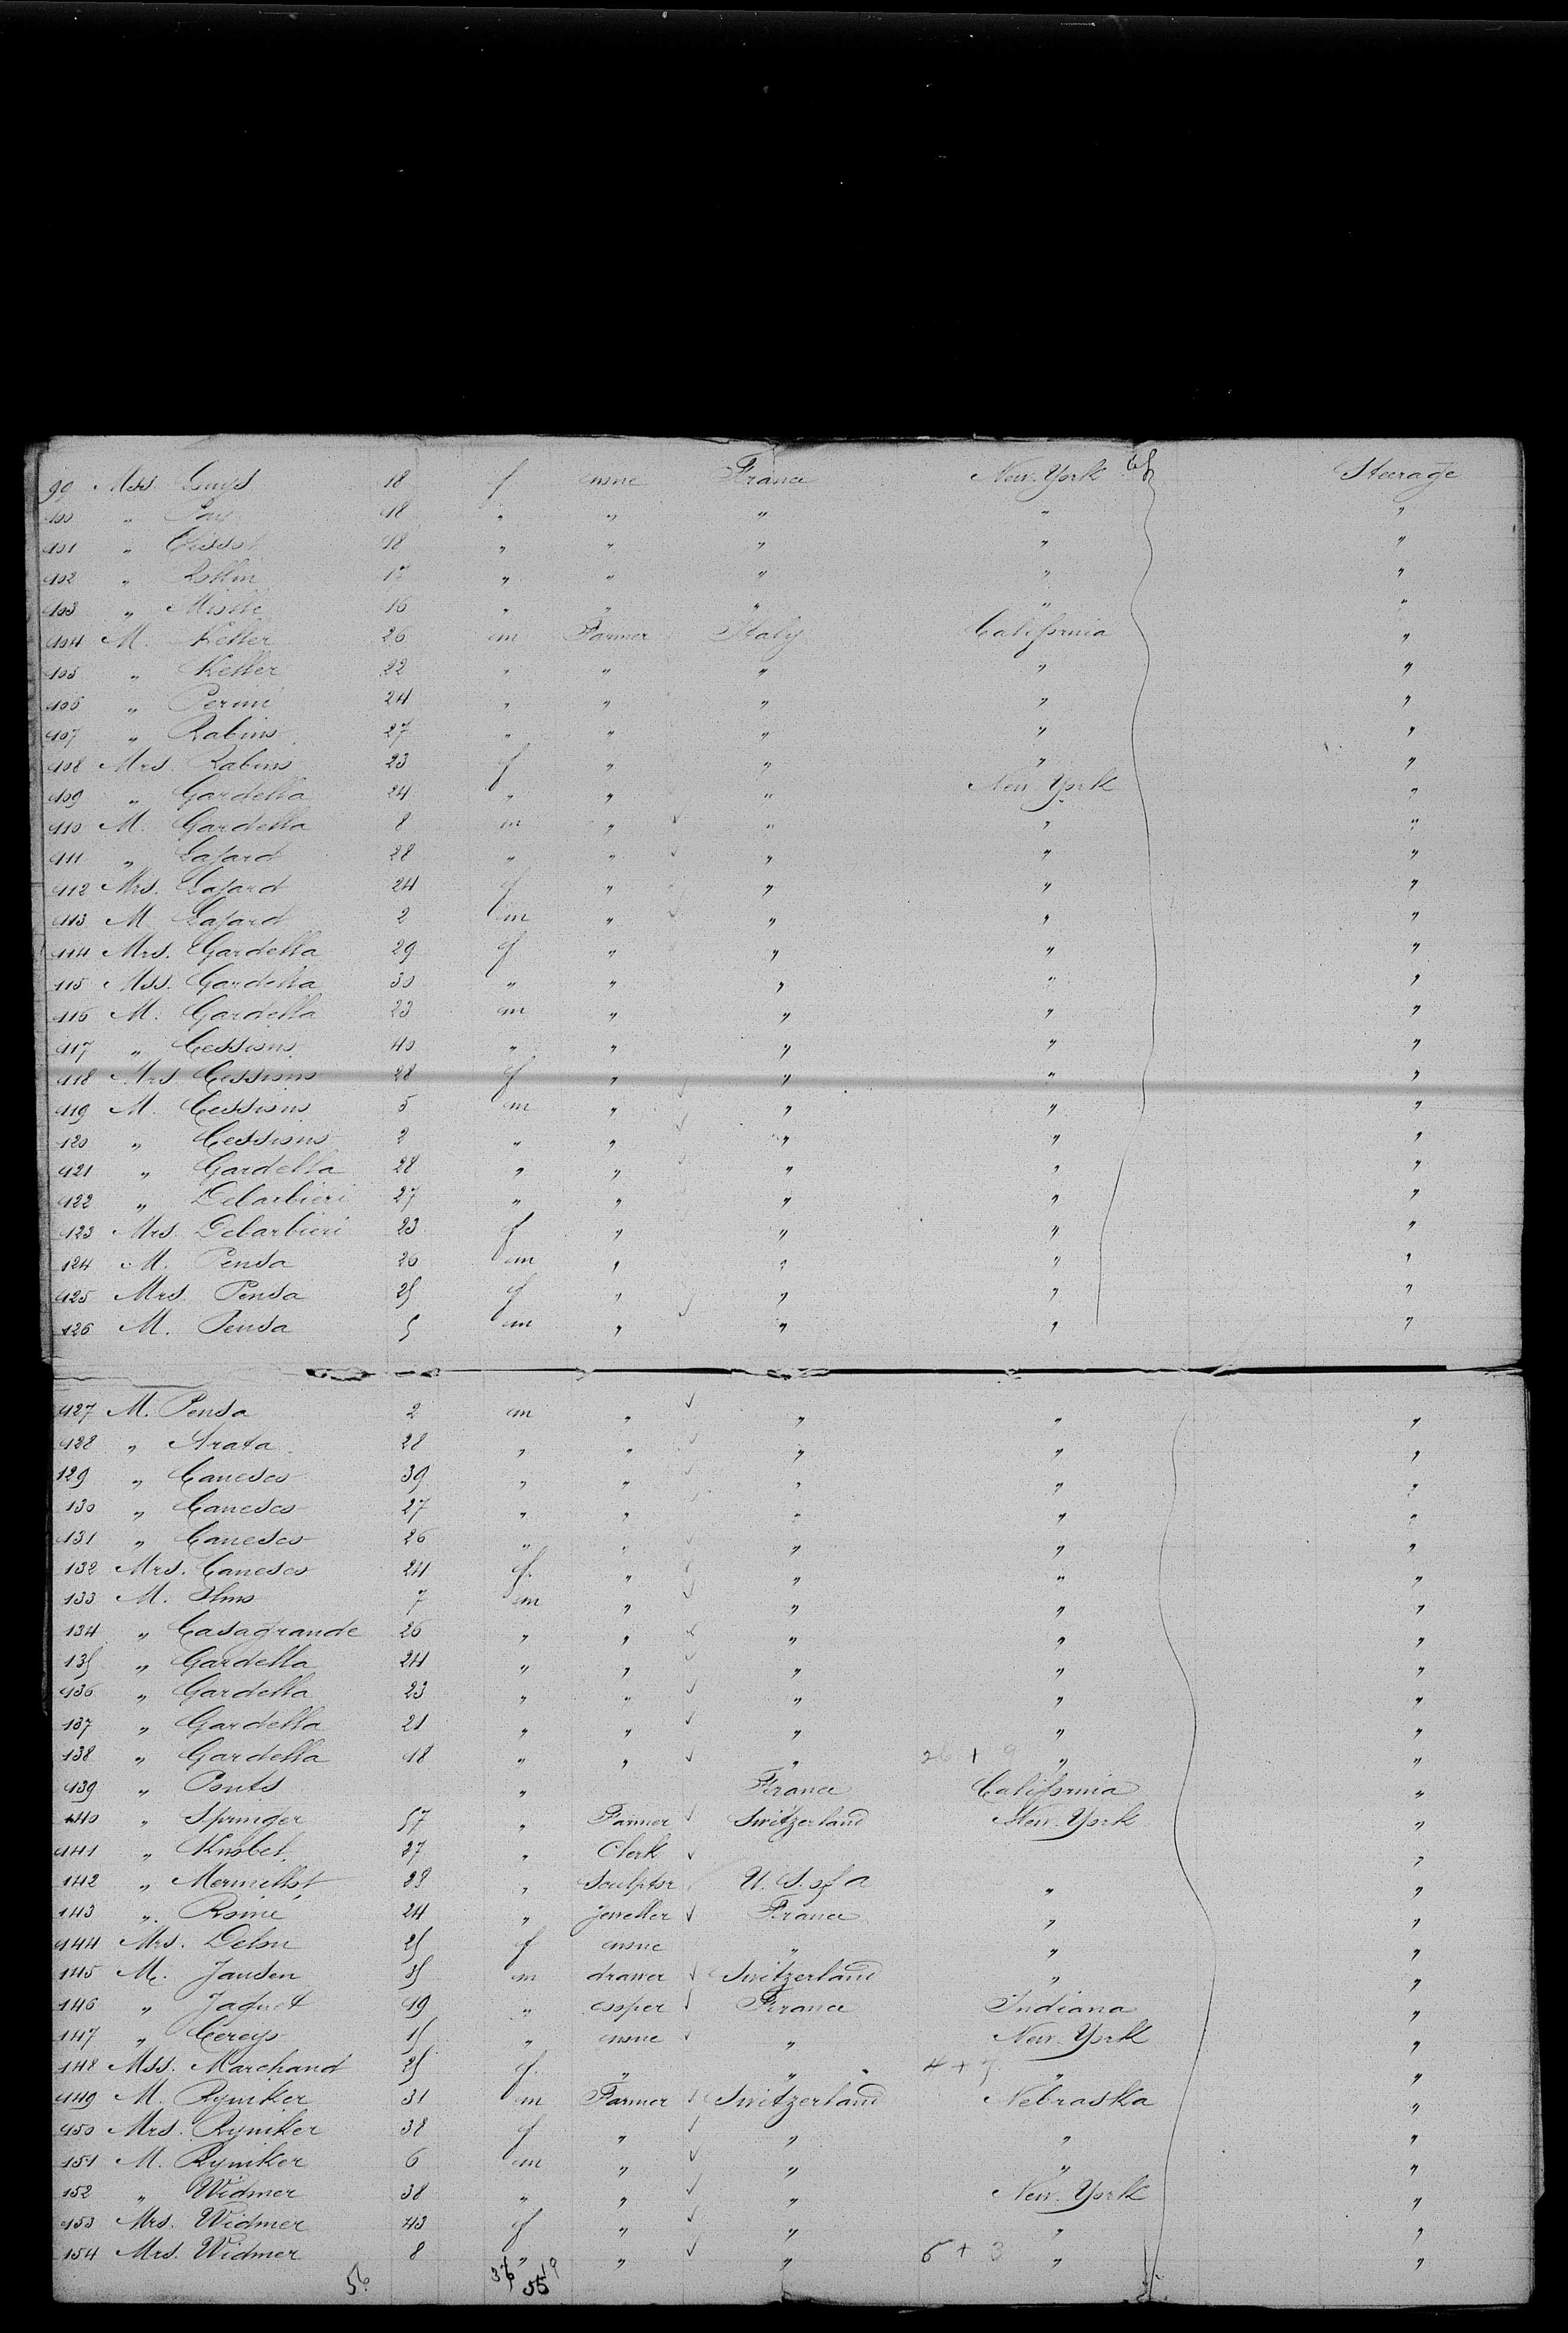 99 Mss. Guys 18 f none France New-York Steerage
100 " 18 " " " " "
101 " Cissot 18 " " " " "
102 " Rollin 17 " " " " "
103 " 16 " " " " "
104 M. Keller 26 m Farmer Italy California "
105 " Keller 22 " " " " "
106 " Perini 24 " " " " "
107 " Rabino 27 " " " " "
108 Mrs. Rabino 23 f " " " "
109 " Gardella 24 " " " New-York "
110 M. Gardella 8 m " " " "
111 " Lafard 28 " " " " "
112 Mrs. Lafard 24 f " " " "
113 M. Lafard 2 m " " " "
114 Mrs. Gardella 29 f " " " "
115 Mss. Gardella 30 " " " " "
116 M. Gardella 23 m " " " "
117 " Cessiono 40 " " " " "
118 Mrs. Cessiono 28 f " " " "
119 M. Cessiono 5 m " " " "
120 " Cessiono 2 " " " " "
121 " Gardella 28 " " " " "
122 " Debarbieri 27 " " " " "
123 Mrs. Debarbieri 23 f " " " "
124 M. Pensa 26 m " " " "
125 Mrs. Pensa 25 f " " " "
126 M. Pensa 5 m " " " "
127 M. Pensa 2 m " " " "
128 " Arata 28 " " " " "
129 " Canesco 39 " " " " "
130 " Canesco 27 " " " " "
131 " Canesco 26 " " " " "
132 Mrs. Canesco 24 f. " " " "
133 M. 7 m " " " "
134 " Casagrande 26 " " " " "
135 " Gardella 24 " " " " "
136 " Gardella 23 " " " " "
137 " Gardella 21 " " " " "
138 " Gardella 18 " " " 26 + 9 " "
139 " Ponts " France California "
140 " Springer 57 " Farmer Switzerland New-York "
141 " Knobel 27 " Clerk "
142 " Mermillot 28 " Sculptor U. S. of a " "
143 " Romé 24 " Jeweller France " "
144 Mrs. Delon 25 f none " " "
145 M. Jansen 35 m drawer Switzerland " "
146 " Jaquet 19 " cooper France Indiana "
147 " Cereys 15 " none " New-York "
148 Mss. Marchand 25 f. " " " "
149 M. Ryniker 31 m Farmer Switzerland Nebraska "
150 Mrs. Ryniker 38 f " " " "
151 M. Ryniker 6 m " " " "
152 " Widmer 38 " " " New-York "
153 Mrs. Widmer 43 f " " " "
154 Mrs. Widmer 8 " " " 6 + 3 " "
56 36 19
55